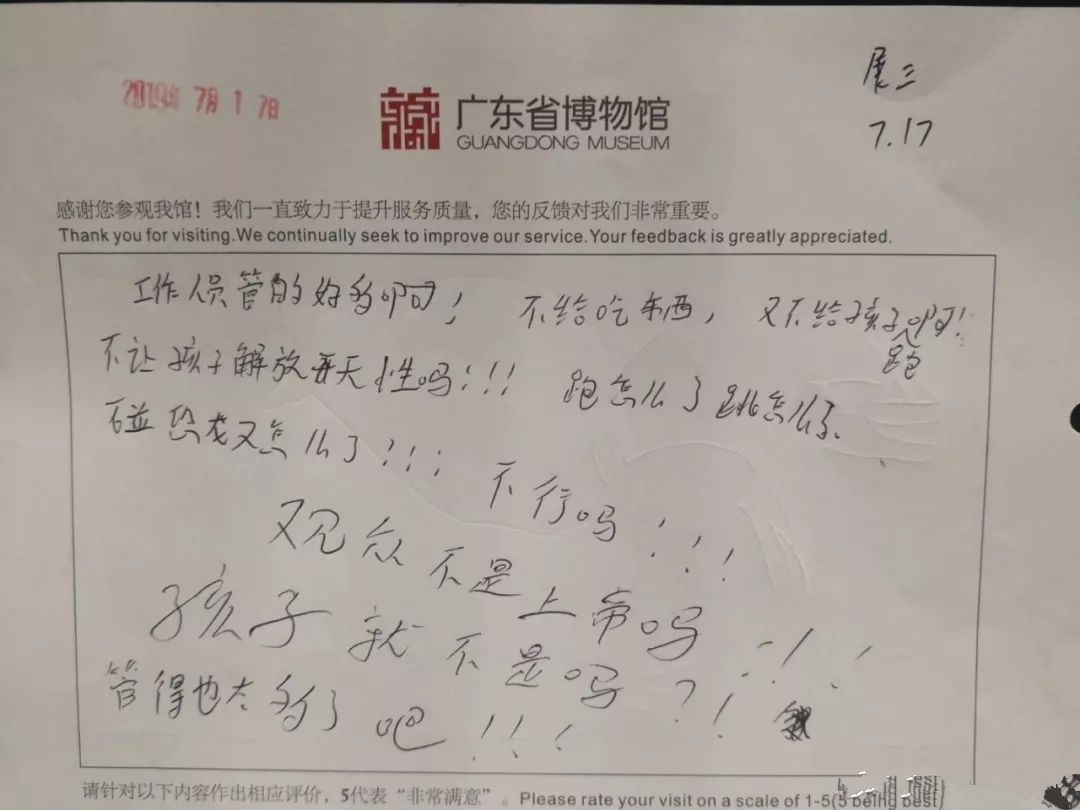 展三
2019年7月17日
广东省博物馆
7.17
GUANGDONG MUSEUM
感谢您参观我馆！我们一直致力于提升服务质量，您的反馈对我们非常重要。
Thank you for visiting.We continually seek to improve our service.Your feedback is greatly appreciated.
工作人员管的好多啊！ 不给吃东西，又不给孩子跑啊！
不让孩子解放天性吗！！！ 跑怎么了跳怎么了、
碰恐龙又怎么了！！！ 不行吗！！！
观众不是上帝吗！！
孩子就不是吗？！
管得也太多了吧！！！
请针对以下内容作出相应评价，5代表“非常满意”。Please rate your visit on a scale of 1-5(5 being best